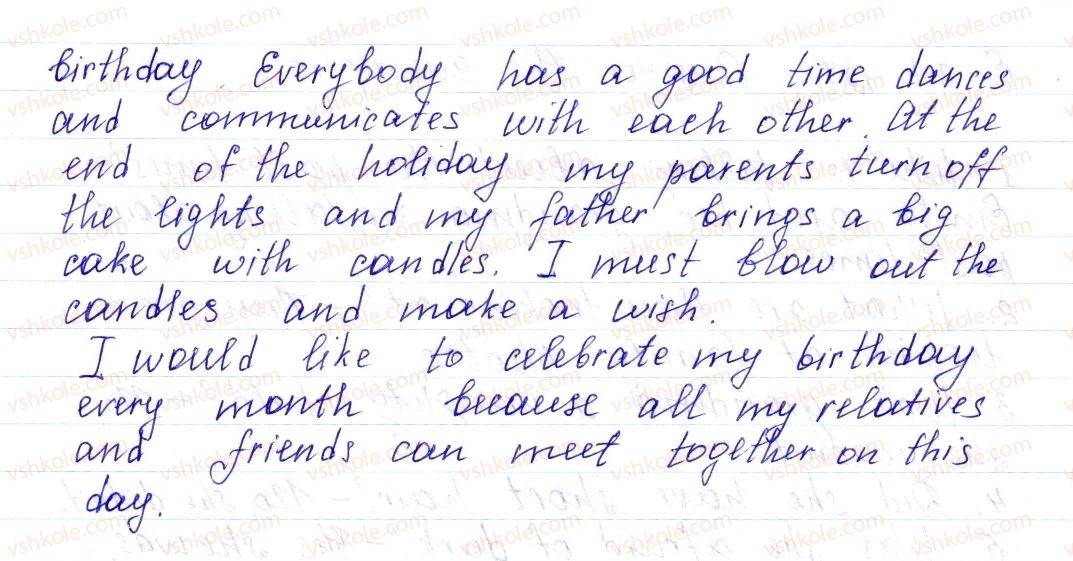 birthday. Everybody has a good time dances
and communicates with each other. At the
end of the holiday my parents turn off
the lights and my father brings a big
cake with candles. I must blow out the
candles and make a wish.
I would like to celebrate my birthday
every month because all my relatives
and friends can meet together on this
day.